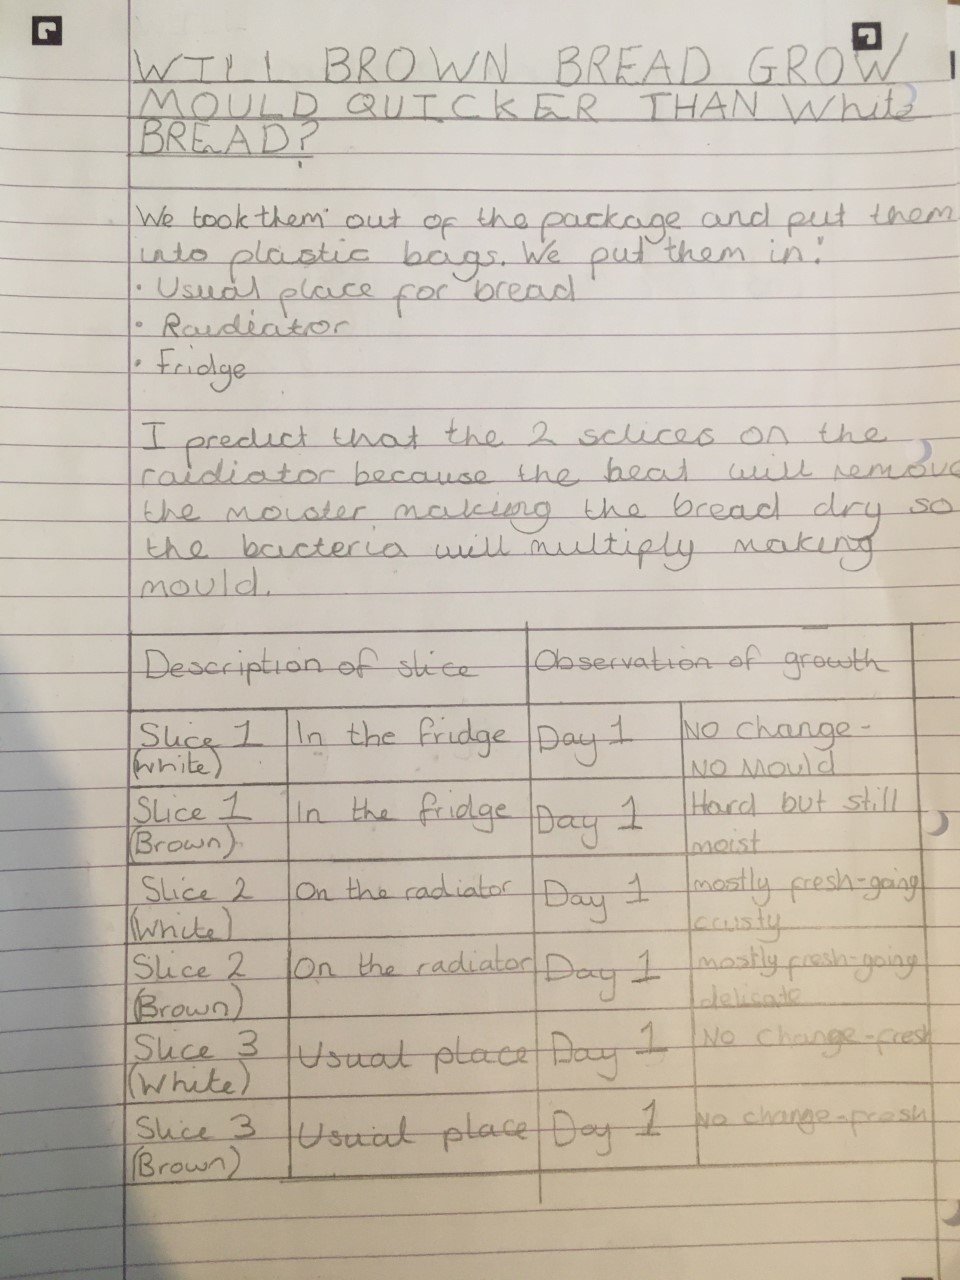 WILL BROWN BREAD GROW
MOULD QUICKER THAN White
BREAD?
We took them out of the package and put them
into plastic bags. We put them in:
• Usual place for bread
• Raidiator
• Fridge
I predict that the 2 sclices on the
raidiator because the heat will remove
the moister making the bread dry so
the bacteria will multiply making
mould.
Description of slice Observation of growth
Slice 1 In the fridge Day 1 No change -
(White) No Mould
Slice 1 In the fridge Day 1 Hard but still
(Brown). moist
Slice 2 On the radiator Day 1 mostly fresh-going
(White) crusty
Slice 2 On the radiator Day 1 mostly fresh-going
(Brown) delicate
Slice 3 Usual place Day 1 No change-fresh
(White)
Slice 3 Usual place Day 1 No change-fresh
(Brown)